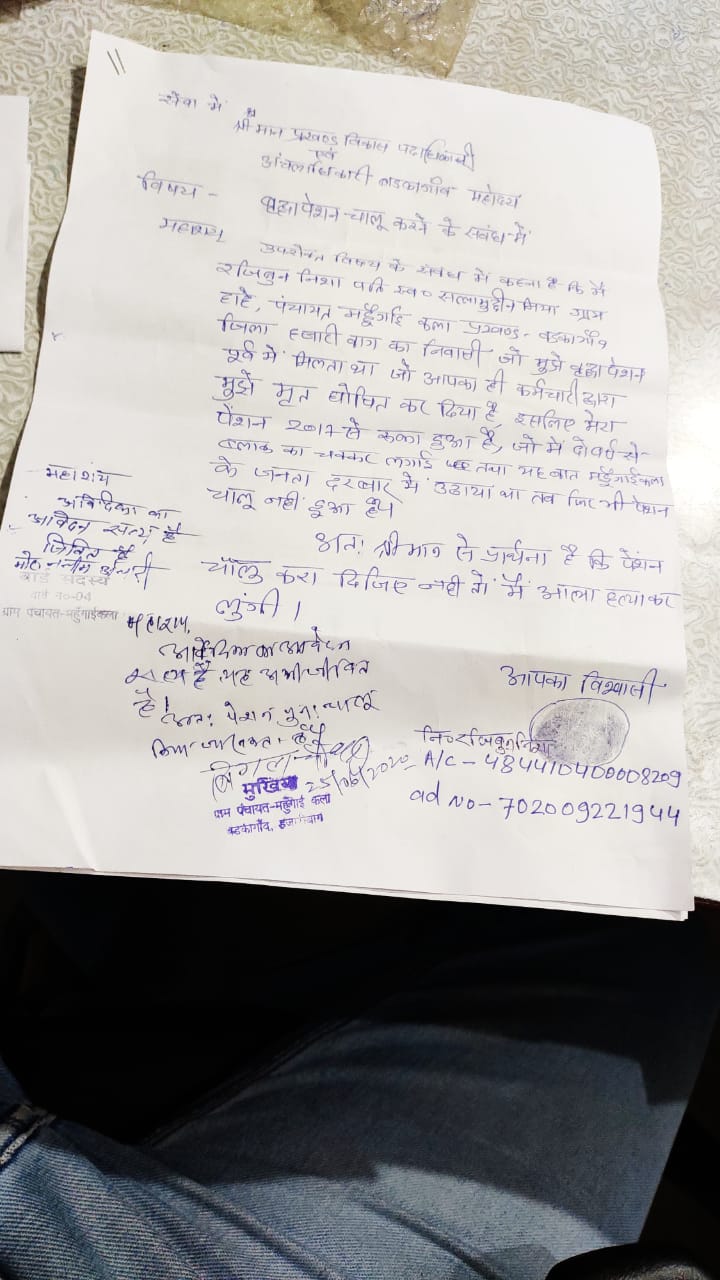 सेवा में
श्रीमान प्रखण्ड विकास पदाधिकारी
एवं
अंचलाधिकारी बड़कागाँव महोदय
विषय - बृद्धा पेंशन चालू करने के संबंध में
महाशय,
उपरोक्त विषय के संबंध में कहना है कि मैं
रजिबुन निशा पति स्व० सलामुद्दीन मियां ग्राम
पंचायत महुँगाई कला प्रखण्ड - बड़कागाँव
जिला हजारी बाग का निवासी जो मुझे बृद्धा पेंशन
पूर्व में मिलता था जो आपका ही कर्मचारी द्वारा
मुझे मृत घोषित कर दिया है, इसलिए मेरा
पेंशन 2017 से रूका हुआ है, जो मैं दो वर्ष से
ब्लाक का चक्कर लगाई तथा यह बात महुँगाई कला
के जनता दरबार में उठाया था तब फिर भी पेंशन
चालू नहीं हुआ है।
अतः श्रीमान से प्रार्थना है कि पेंशन
चालू करा दिजिए नहीं तो मैं आत्म हत्या कर
लुंगी।
महाशय
आवेदिका का
आवेदन सत्य है
जिवित है
मो०
वार्ड सदस्य
वार्ड नं०-04
ग्राम पंचायत-महुँगाईकला
महाशय,
आवेदिका का आवेदन
सत्य है यह अभी जीवित
है।
अतः पेंशन पुनः चालू
किया जा सकता है
25/06/2020
मुखिया
ग्राम पंचायत-महुँगाई कला
बड़कागाँव, हजारीबाग
आपका विश्वासी
नि० रजिबुन निशा
A/C - 484410400008209
ad No - 702009221944